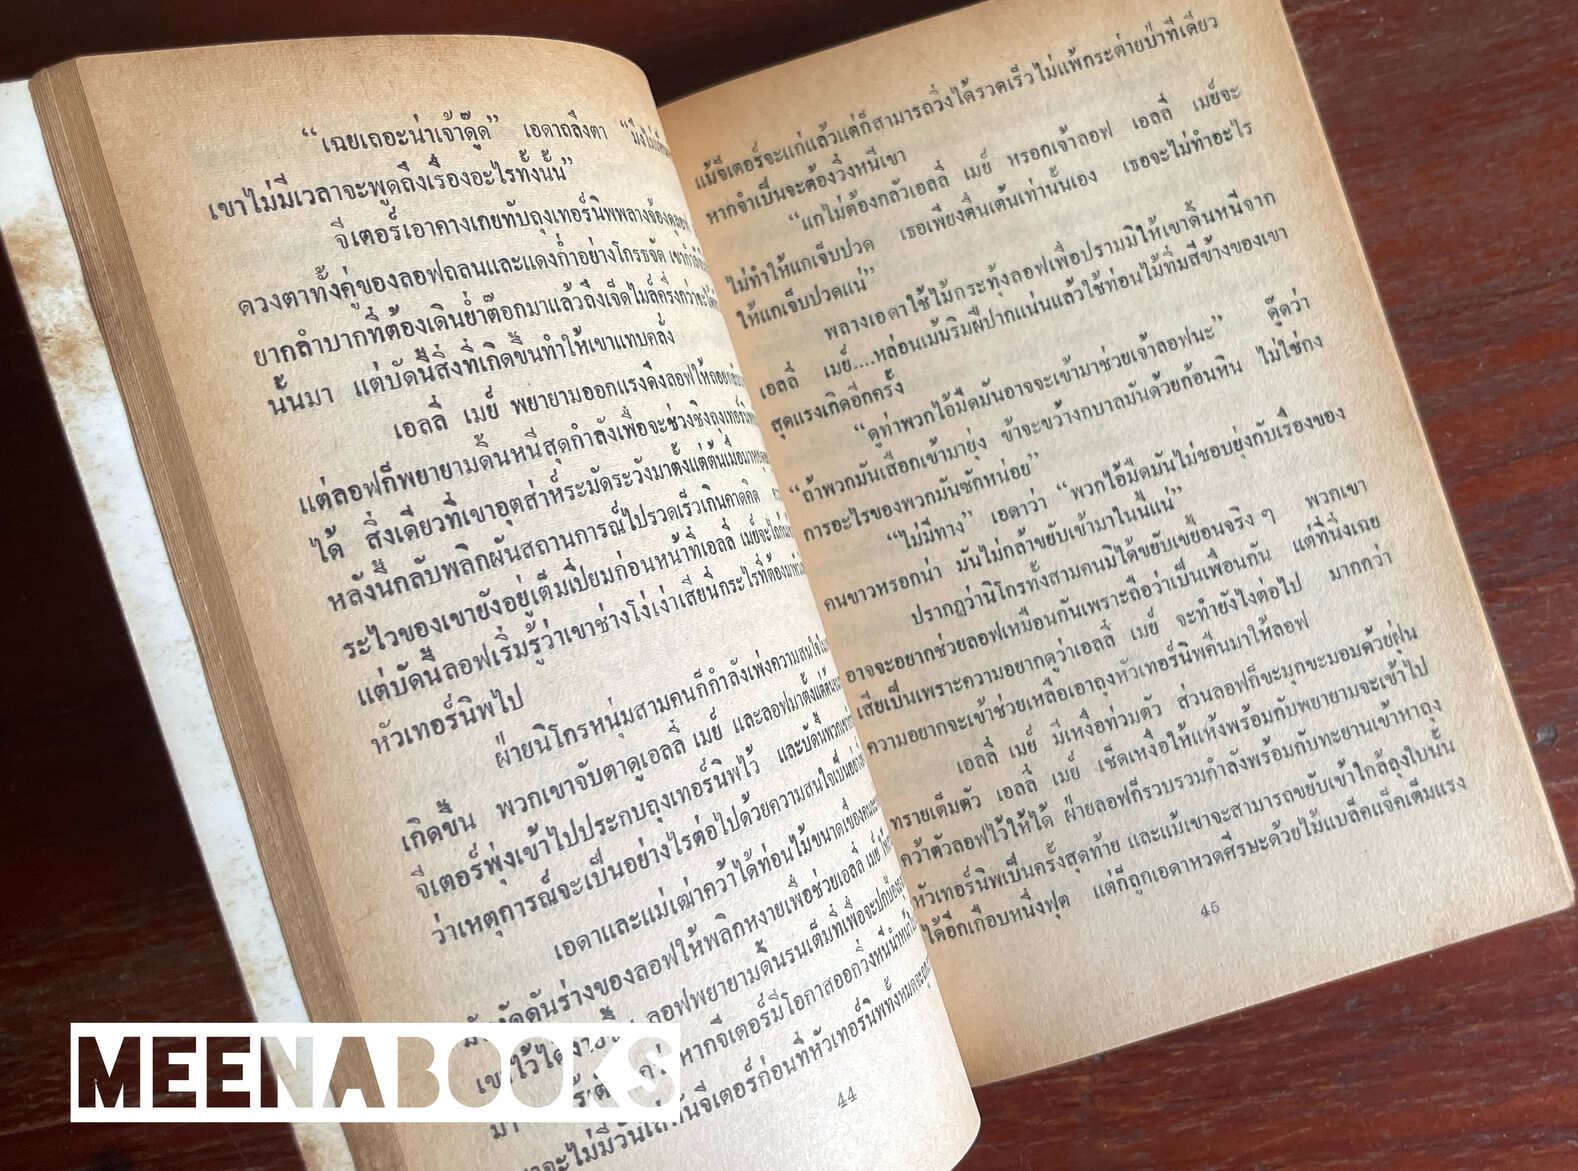 “เฉยเถอะน่าเจ้าดู๊ด” เอดาถลึงตา
เขาไม่มีเวลาจะพูดถึงเรื่องอะไรทั้งนั้น”
จีเตอร์เอาคางเกยทับถุงเทอร์นิพพลางจ้อง
ดวงตาทั้งคู่ของลอฟถลนและแดงก่ำอย่างโกรธจัด
ยากลำบากที่ต้องเดินย่ำต๊อกมาแล้วถึงเจ็ดไมล์ครึ่งกว่าจะได้
นั้นมา แต่บัดนี้สิ่งที่เกิดขึ้นทำให้เขาแทบคลั่ง
เอลลี่ เมย์ พยายามออกแรงดึงลอฟให้ถอย
แต่ลอฟก็พยายามดิ้นหนีสุดกำลังเพื่อจะช่วงชิงถุง
ได้ สิ่งเดียวที่เขาอุตส่าห์ระมัดระวังมาตั้งแต่ต้นเมื่อ
หลังนี้กลับพลิกผันสถานการณ์ไปรวดเร็วเกินคาดคิด
ระไวของเขายังอยู่เต็มเปี่ยมก่อนหน้าที่เอลลี่ เมย์จะ
แต่บัดนี้ลอฟเริ่มรู้ว่าเขาช่างโง่เง่าเสียนี่กระไรที่ต้องมา
หัวเทอร์นิพไป
ฝ่ายนิโกรหนุ่มสามคนก็กำลังเพ่งความสนใจ
เกิดขึ้น พวกเขาจับตาดูเอลลี่ เมย์ และลอฟมาตั้งแต่ต้น
จีเตอร์พุ่งเข้าไปประกบถุงเทอร์นิพไว้ และบัดนี้พวกเขา
ว่าเหตุการณ์จะเป็นอย่างไรต่อไปด้วยความสนใจเป็นอย่าง
เอดาและแม่เฒ่าคว้าได้ท่อนไม้ขนาดเขื่อง
ดันร่างของลอฟให้พลิกหงายเพื่อช่วยเอลลี่ เมย์
ลอฟพยายามดิ้นรนเต็มที่เพื่อจะ
หากจีเตอร์มีโอกาสออกวิ่งหนี
จีเตอร์ก่อนที่หัวเทอร์นิพทั้งหมดจะ
44
แม้จีเตอร์จะแก่แล้วแต่ก็สามารถวิ่งได้รวดเร็วไม่แพ้กระต่ายป่าทีเดียว
หากจำเป็นจะต้องวิ่งหนีเขา
“แกไม่ต้องกลัวเอลลี่ เมย์ หรอกเจ้าลอฟ เอลลี่ เมย์จะ
ไม่ทำให้แกเจ็บปวด เธอเพียงตื่นเต้นเท่านั้นเอง เธอจะไม่ทำอะไร
ให้แกเจ็บปวดแน่”
พลางเอดาใช้ไม้กระทุ้งลอฟเพื่อปรามมิให้เขาดิ้นหนีจาก
เอลลี่ เมย์....หล่อนเม้มริมฝีปากแน่นแล้วใช้ท่อนไม้ทิ่มสีข้างของเขา
สุดแรงเกิดอีกครั้ง
“ดูท่าพวกไอ้มืดมันอาจจะเข้ามาช่วยเจ้าลอฟนะ” ดู๊ดว่า
“ถ้าพวกมันเสือกเข้ามายุ่ง ข้าจะขว้างกบาลมันด้วยก้อนหิน ไม่ใช่กง
การอะไรของพวกมันซักหน่อย”
“ไม่มีทาง” เอดาว่า “พวกไอ้มืดมันไม่ชอบยุ่งกับเรื่องของ
คนขาวหรอกน่า มันไม่กล้าขยับเข้ามาในนี้แน่”
ปรากฏว่านิโกรทั้งสามคนมิได้ขยับเขยื้อนจริง ๆ พวกเขา
อาจจะอยากช่วยลอฟเหมือนกันเพราะถือว่าเป็นเพื่อนกัน แต่ที่นิ่งเฉย
เสียเป็นเพราะความอยากดูว่าเอลลี่ เมย์ จะทำยังไงต่อไป มากกว่า
ความอยากจะเข้าช่วยเหลือเอาถุงหัวเทอร์นิพคืนมาให้ลอฟ
เอลลี่ เมย์ มีเหงื่อท่วมตัว ส่วนลอฟก็ขะมุกขะมอมด้วยฝุ่น
ทรายเต็มตัว เอลลี่ เมย์ เช็ดเหงื่อให้แห้งพร้อมกับพยายามจะเข้าไป
คว้าตัวลอฟไว้ให้ได้ ฝ่ายลอฟก็รวบรวมกำลังพร้อมกับทะยานเข้าหาถุง
หัวเทอร์นิพเป็นครั้งสุดท้าย และแม้เขาจะสามารถขยับเข้าใกล้ถุงใบนั้น
ได้อีกเกือบหนึ่งฟุต แต่ก็ถูกเอดาหวดศีรษะด้วยไม้แบล็คแจ็คเต็มแรง
45
MEENABOOKS